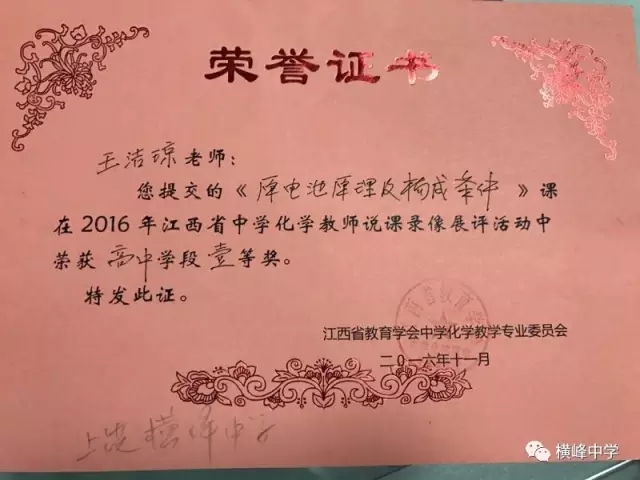 荣誉证书
王洁琼老师：
您提交的《原电池原理及构成条件》课
在2016年江西省中学化学教师说课录像展评活动中
荣获高中学段壹等奖。
特发此证。
江西省教育学会中学化学教学专业委员会
二〇一六年十一月
上饶横峰中学
横峰中学